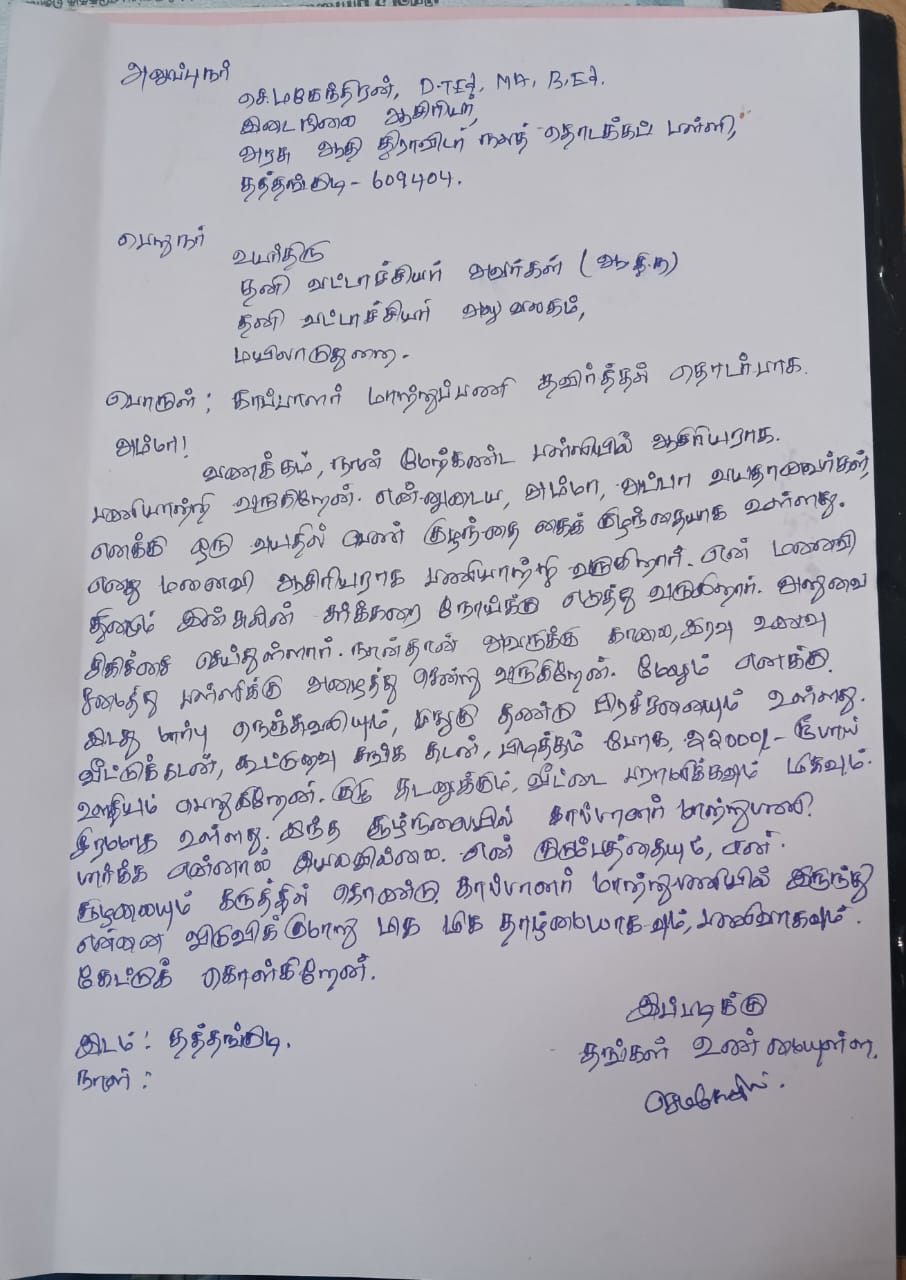 அனுப்புநர்
செ.மகேந்திரன், D.TEd, MA, B.Ed.
இடைநிலை ஆசிரியர்,
அரசு ஆதி திராவிடர் நலத் தொடக்கப் பள்ளி,
தத்தங்குடி - 609404.
பெறுநர்
உயர்திரு
தனி வட்டாச்சியர் அவர்கள் (ஆ.தி.ந)
தனி வட்டாச்சியர் அலுவலகம்,
மயிலாடுதுறை.
பொருள் : காப்பாளர் மாற்றுப்பணி தவிர்த்தல் தொடர்பாக.
அம்மா!
வணக்கம், நான் மேற்கண்ட பள்ளியில் ஆசிரியராக.
பணியாற்றி வருகிறேன். என்னுடைய, அம்மா, அப்பா வயதானவர்கள்,
எனக்கு ஒரு வயதில் பெண் குழந்தை கைக் குழந்தையாக உள்ளது.
எனது மனைவி ஆசிரியராக பணியாற்றி வருகிறார். என் மனைவி
தினமும் இன்சுலின் சர்க்கரை நோய்க்கு எடுத்து வருகிறார். அறுவை
சிகிச்சை செய்துள்ளார். நான்தான் அவருக்கு காலை, இரவு உணவு
சமைத்து பள்ளிக்கு அழைத்து சென்று வருகிறேன். மேலும் எனக்கு
இடது மார்பு நெஞ்சுவலியும், முதுகு தண்டு பிரச்சனையும் உள்ளது.
வீட்டுக்கடன், கூட்டுறவு சங்க கடன், பிடித்தம் போக, 22000/- ரூபாய்
ஊதியம் பெறுகிறேன். இது கடனுக்கும், வீட்டை பராமரிக்கவும் மிகவும்.
சிரமமாக உள்ளது. இந்த சூழ்நிலையில் காப்பாளர் மாற்றுபணி
பார்க்க என்னால் இயலவில்லை. என் குடும்பத்தையும், என்
சூழலையும் கருத்தில் கொண்டு காப்பாளர் மாற்றுபணியில் இருந்து
என்னை விடுவிக்குமாறு மிக மிக தாழ்மையாகவும், பணிவாகவும்.
கேட்டுக் கொள்கிறேன்.
இப்படிக்கு
இடம் : தத்தங்குடி.
தங்கள் உண்மையுள்ள.
நாள் :